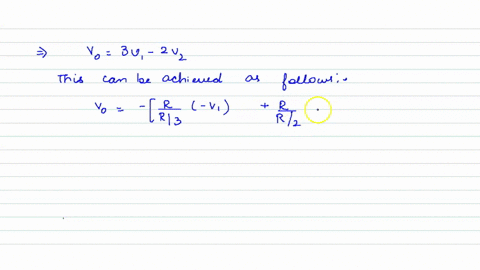 ⇒ V₀ = 3v₁ - 2v₂
This can be achieved as follows:.
V₀ = -[R/R/3 (-V₁) + R/R/2 .